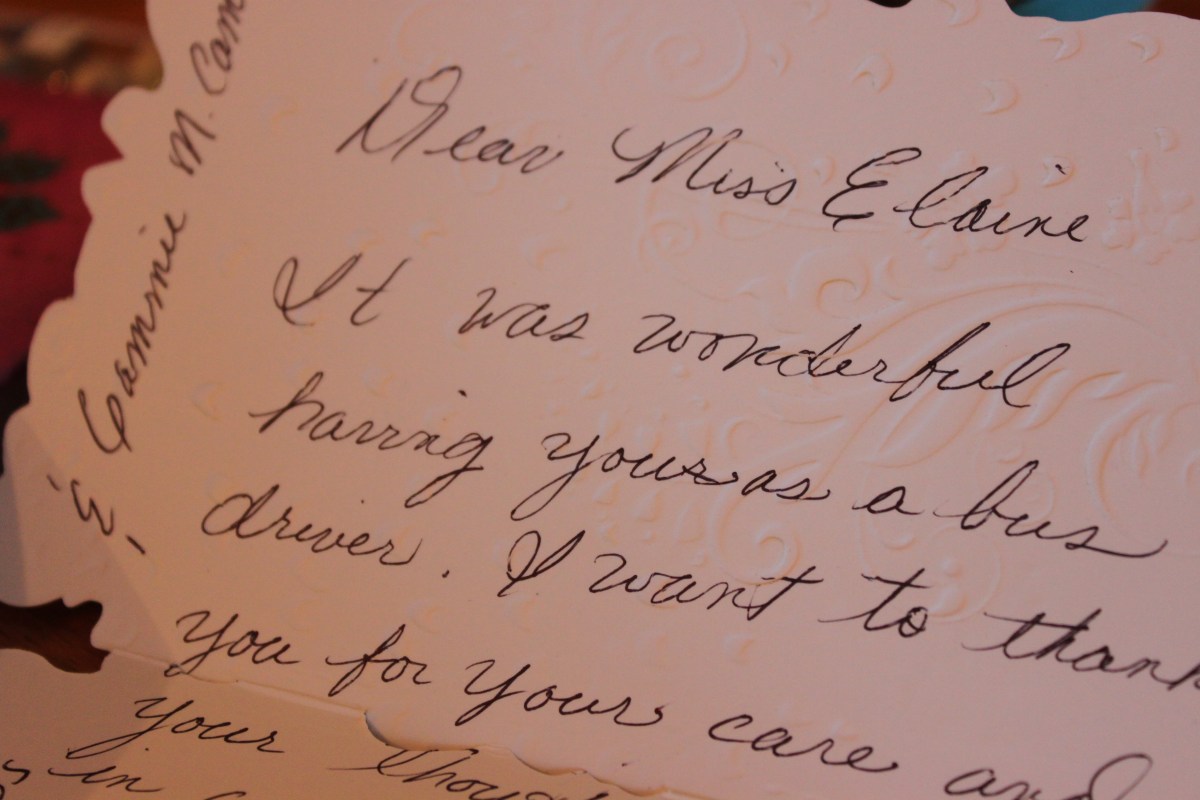 Dear Miss Elaine
It was wonderful
having yours as a bus
driver. I want to thank
you for yours care and
your
in
& Cammie M. Cam